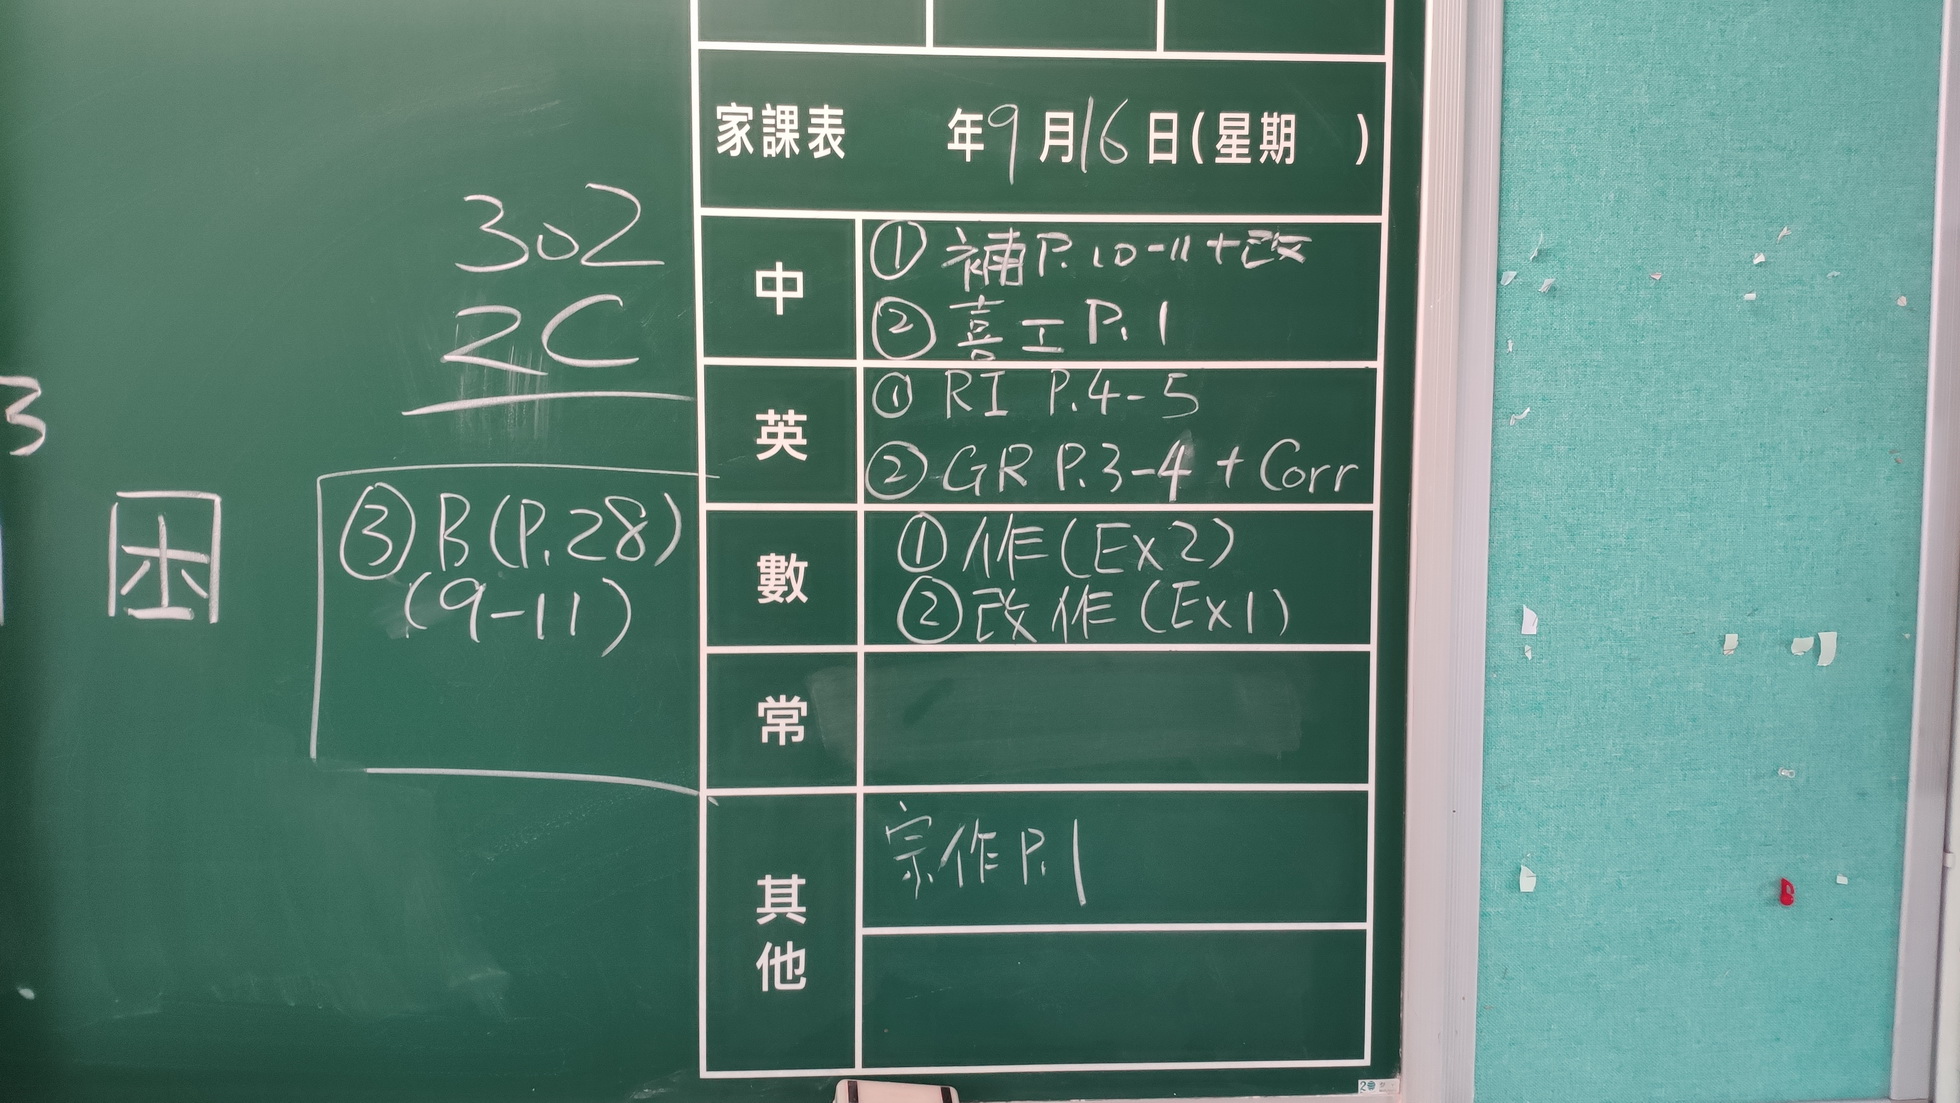 家課表 年9月16日(星期 )
302
2C
中
① 補P.10-11+改
② 喜工P.1
英
① RI P.4-5
② GR P.3-4 + Corr
③ B(P.28)
(9-11)
數
① 作(Ex2)
② 改作(Ex1)
常
其他
宗作P.1
3